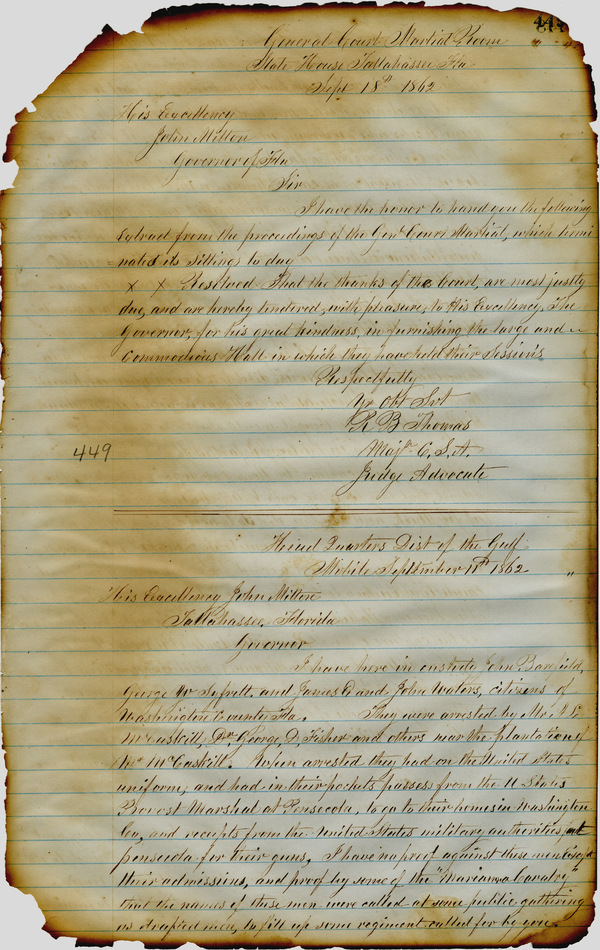 449
General Court Martial Room
State House Tallahassee Fla
Sept 18th 1862
His Excellency
John Milton
Governor of Fla
Sir
I have the honor to hand you the following
Extract from the proceedings of the Genl Court Martial, which termi
nated its sittings to day
x x Resolved That the thanks of the Court, are most justly
due, and are hereby tendered, with pleasure, to His Excellency, The
Governor, for his great kindness, in furnishing the large and
Commodious Hall in which they have held their Sessions
Respectfully
Yr Obt Svt
R B Thomas
Majr C. S. A.
449
Judge Advocate
Head Quarters Dist of the Gulf
Mobile September 11th 1862
His Excellency John Milton
Tallahassee, Florida
Governor
I have here in custody John Barefield,
George W and James D and John Waters, citizens of
Washington County Fla. They were arrested by Mr
McCaskill, Dr George D. Fisher and others near the plantation of
Mr McCaskill. When arrested they had on the United States
uniform, and had in their pockets passes from the U States
Provost Marshal at Pensecola, to go to their homes in Washington
Co, and receipts from the United States military authorities, at
Pensecola for their guns. I have no proof against these men except
their admissions, and proof by some of the "Marianna Cavalry"
that the names of these men were called at some public gathering
as drafted men, to fill up some regiment called for by you.